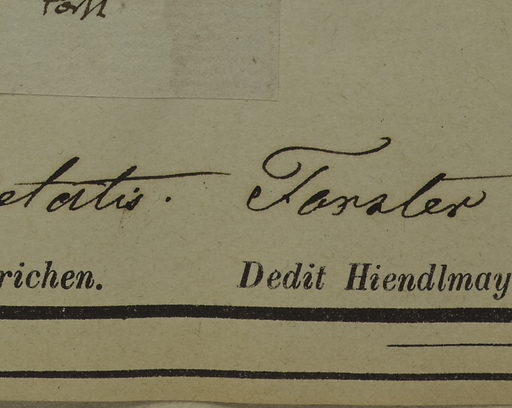 Forst
etatis. Forster
richen. Dedit Hiendlmay